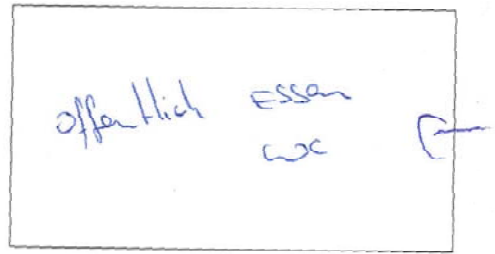 offentlich Essen
WC